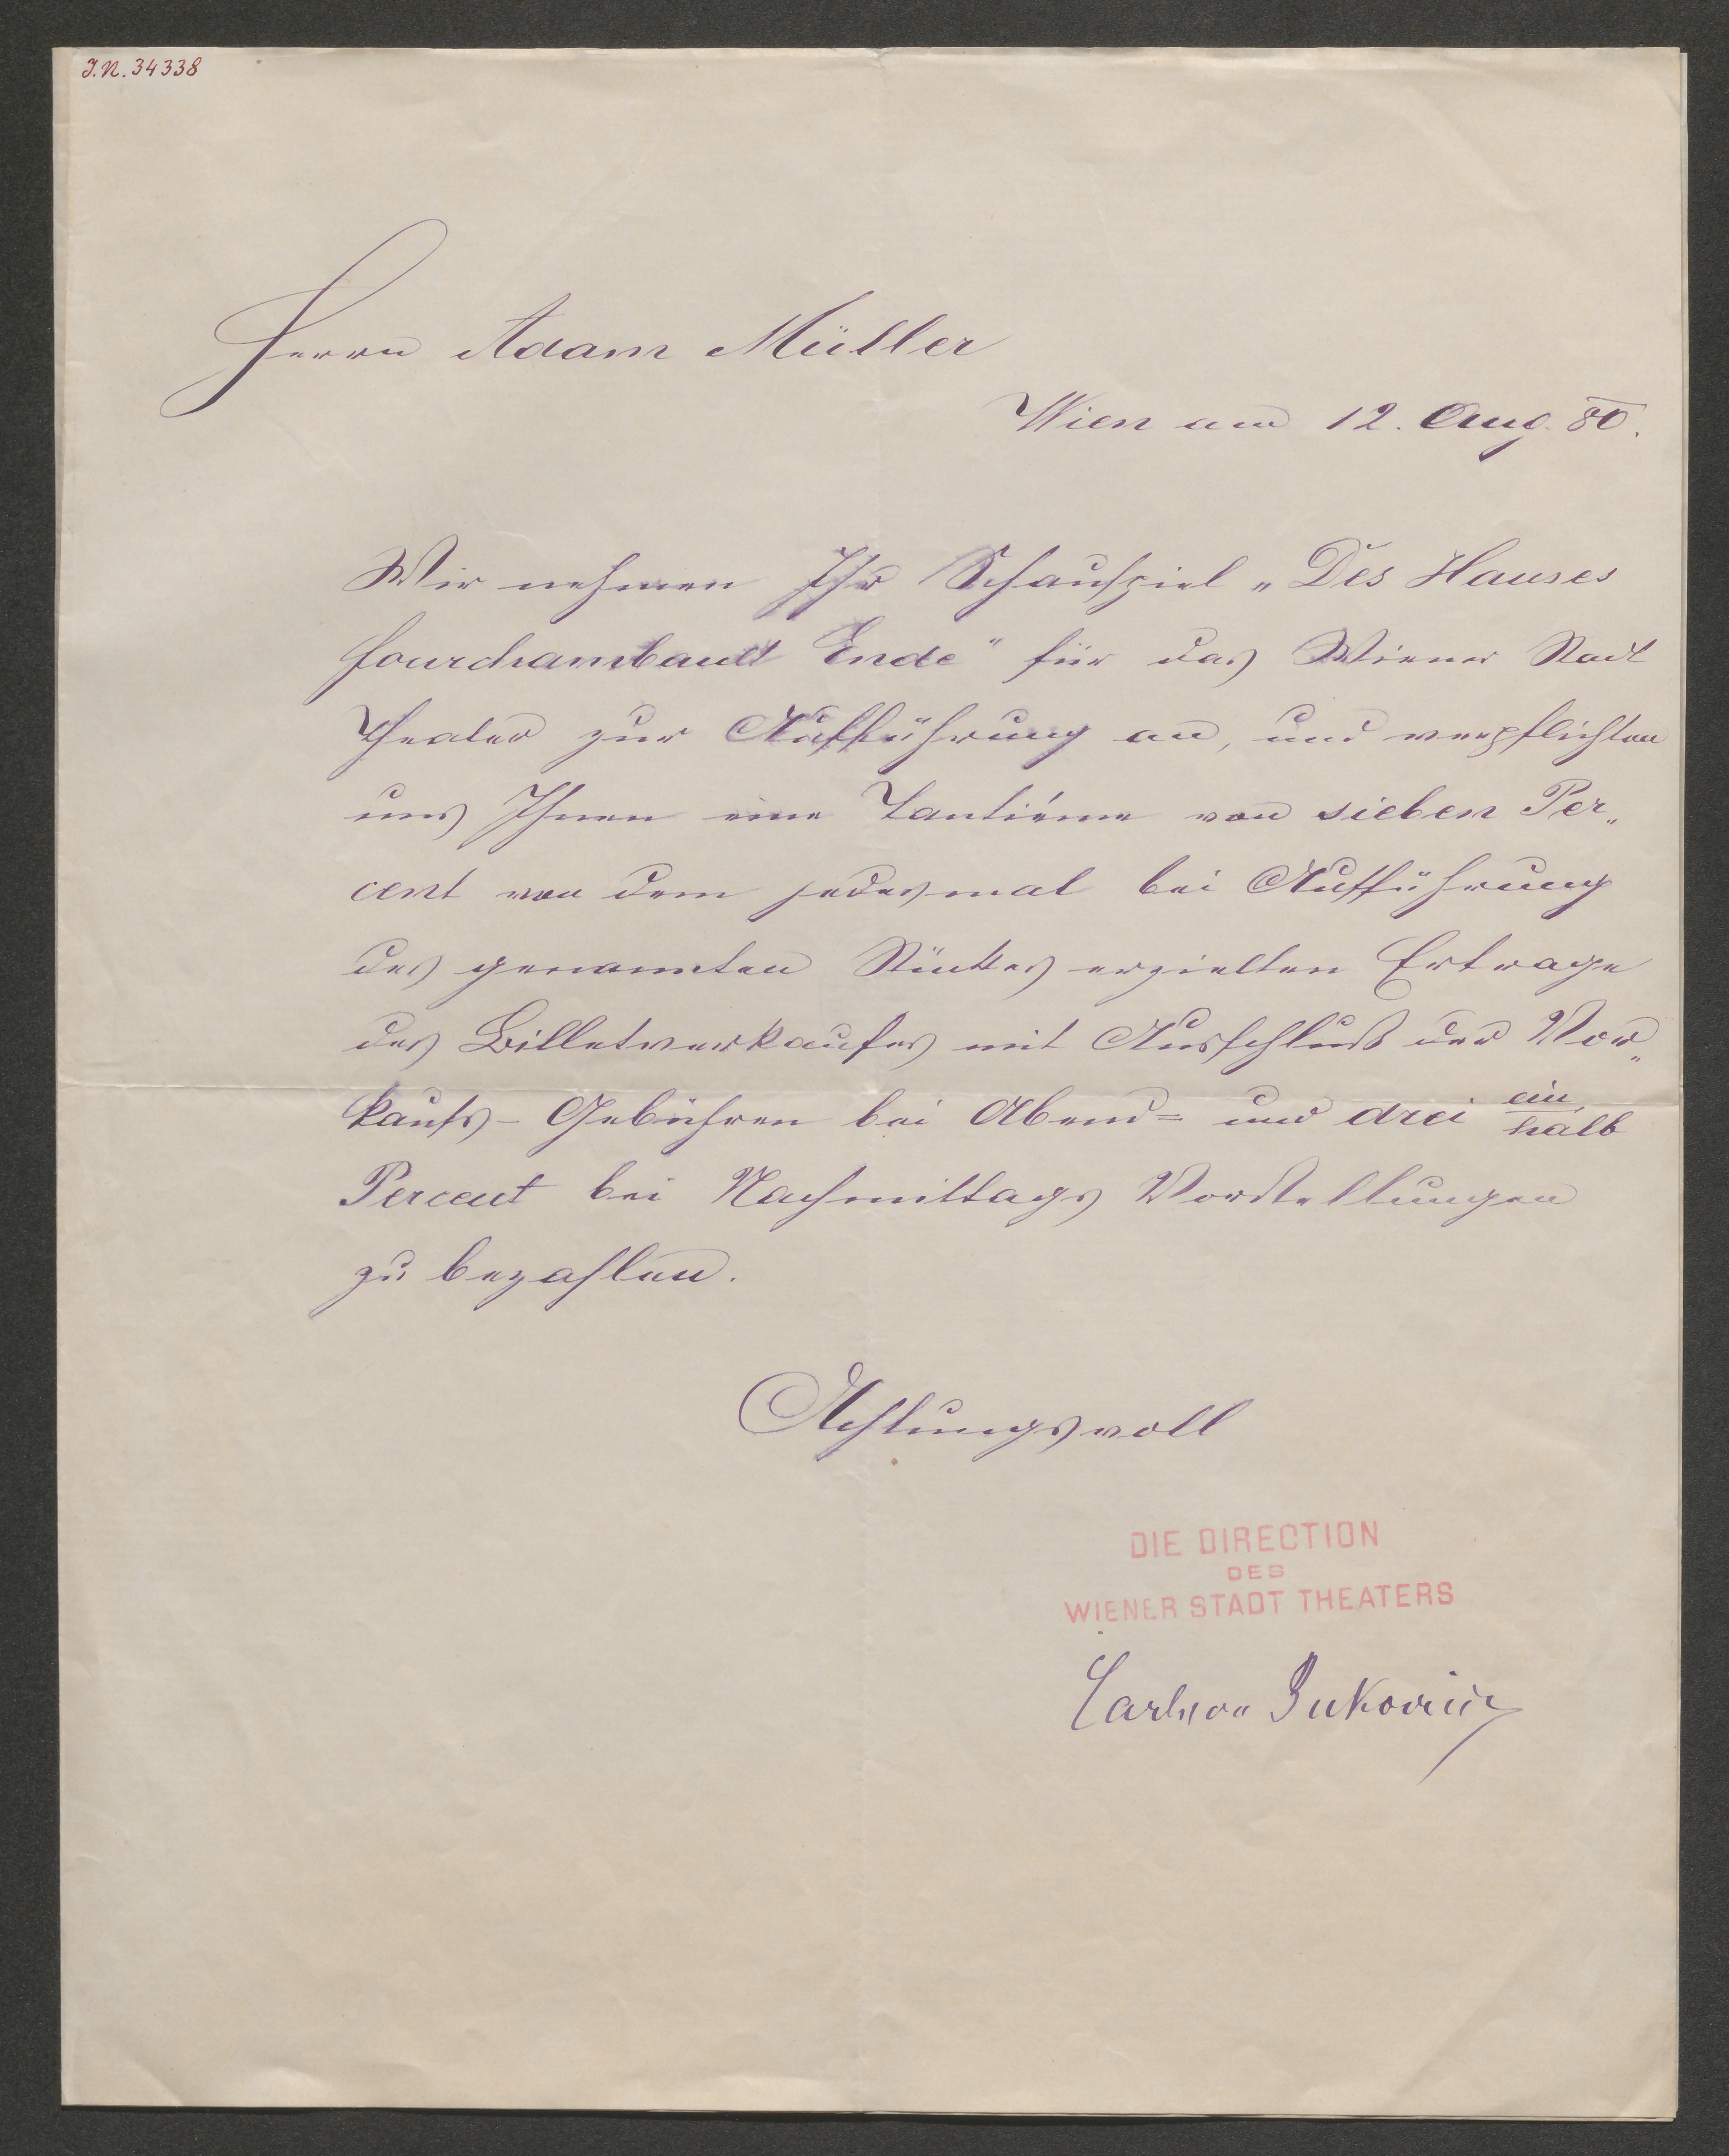 J.N. 34338
Herrn Adam Müller
Wien am 12. Aug. 80.
Wir nehmen Ihr Schauspiel „Des Hauses
fourchambault Ende" für das Wiener Stadt
Theater zur Aufführung an, und verpflichten
uns Ihnen eine Tantiéme von sieben Per„
cent von dem jedesmal bei Aufführung
des genannten Stückes erzielten Ertrage
des Billetverkaufes mit Ausschluß der Vor„
kaufs- Gebühren bei Abend= und drei ein
halb
Percent bei Nachmittags Vorstellungen
zu bezahlen.
Achtungsvoll
DIE DIRECTION
DES
WIENER STADT THEATERS
Carl von Bukovics